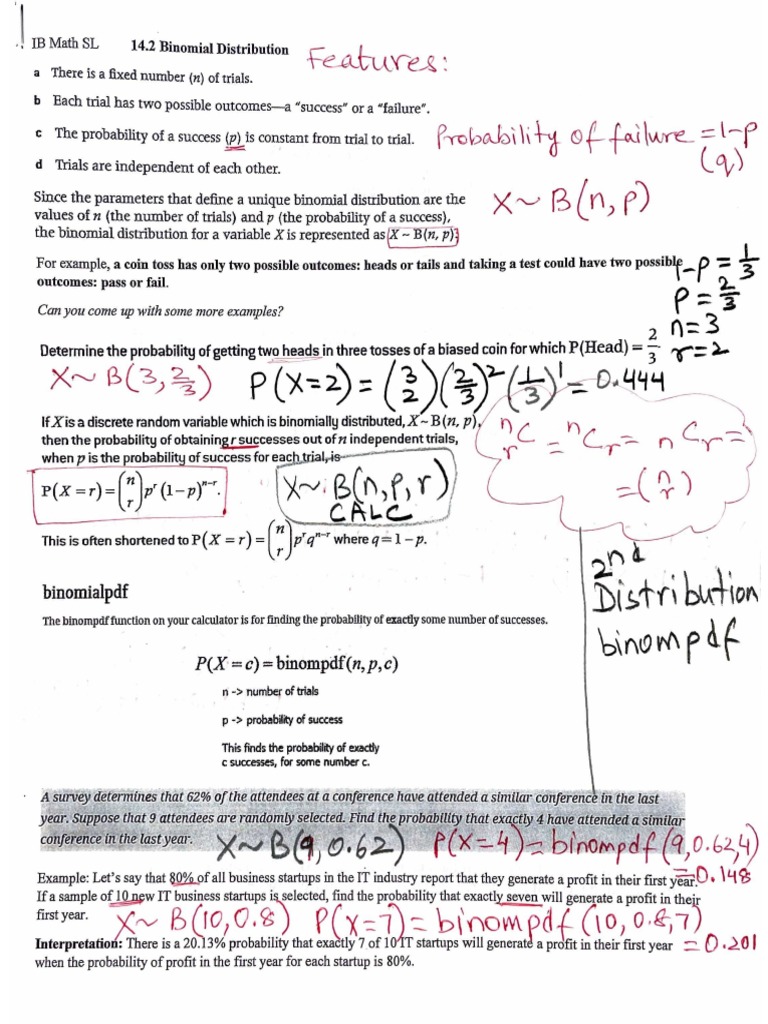 IB Math SL 14.2 Binomial Distribution Features:
a There is a fixed number (n) of trials.
b Each trial has two possible outcomes—a “success” or a “failure”.
c The probability of a success (p) is constant from trial to trial. Probability of failure = 1-p
(q)
d Trials are independent of each other.
Since the parameters that define a unique binomial distribution are the
values of n (the number of trials) and p (the probability of a success),
the binomial distribution for a variable X is represented as X ~ B(n, p).
X ~ B(n, p)
For example, a coin toss has only two possible outcomes: heads or tails and taking a test could have two possible
outcomes: pass or fail.
1-p = 1/3
p = 2/3
n = 3
r = 2
Can you come up with some more examples?
Determine the probability of getting two heads in three tosses of a biased coin for which P(Head) = 2/3
X ~ B(3, 2/3) P(X=2) = (3 2) (2/3)² (1/3)¹ = 0.444
If X is a discrete random variable which is binomially distributed, X ~ B(n, p),
then the probability of obtaining r successes out of n independent trials,
when p is the probability of success for each trial, is
P(X = r) = (n r) p^r (1 – p)^n–r.
X ~ B(n, p, r)
CALC
nCr = nCr = nCr =
= (n r)
This is often shortened to P(X = r) = (n r) p^r q^n–r where q = 1 – p.
2nd
Distribution
binompdf
binomialpdf
The binompdf function on your calculator is for finding the probability of exactly some number of successes.
P(X = c) = binompdf(n, p, c)
n -> number of trials
p -> probability of success
This finds the probability of exactly
c successes, for some number c.
A survey determines that 62% of the attendees at a conference have attended a similar conference in the last
year. Suppose that 9 attendees are randomly selected. Find the probability that exactly 4 have attended a similar
conference in the last year. X ~ B(9, 0.62) P(X=4) = binompdf(9, 0.62, 4)
= 0.148
Example: Let’s say that 80% of all business startups in the IT industry report that they generate a profit in their first year.
If a sample of 10 new IT business startups is selected, find the probability that exactly seven will generate a profit in their
first year. X ~ B(10, 0.8) P(X=7) = binompdf(10, 0.8, 7)
= 0.201
Interpretation: There is a 20.13% probability that exactly 7 of 10 IT startups will generate a profit in their first year
when the probability of profit in the first year for each startup is 80%.